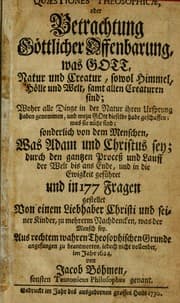 QUÆSTIONES THEOSOPHICÆ,
oder
Betrachtung
Göttlicher Offenbarung,
was GOTT,
Natur und Creatur, sowol Himmel,
Hölle und Welt, samt allen Creaturen
sind;
Woher alle Dinge in der Natur ihren Ursprung
haben genommen, und wozu GOtt dieselbe habe geschaffen:
was sie nütz sind;
sonderlich von dem Menschen,
Was Adam und Christus sey;
durch den gantzen Proceß und Lauff
der Welt bis ans Ende, und in die
Ewigkeit geführet
und in 177 Fragen
gestellet
Von einem Liebhaber Christi und seiner
Kinder, zu mehrerm Nachdencken, was der
Mensch sey.
Aus rechtem wahren Theosophischen Grunde
angefangen zu beantworten, iedoch nicht vollendet,
im Jahr 1624,
von
Jacob Böhmen,
sonsten Teutonicus Philosophus genant.
Gedruckt im Jahr des ausgebornen grossen Heils 1730.